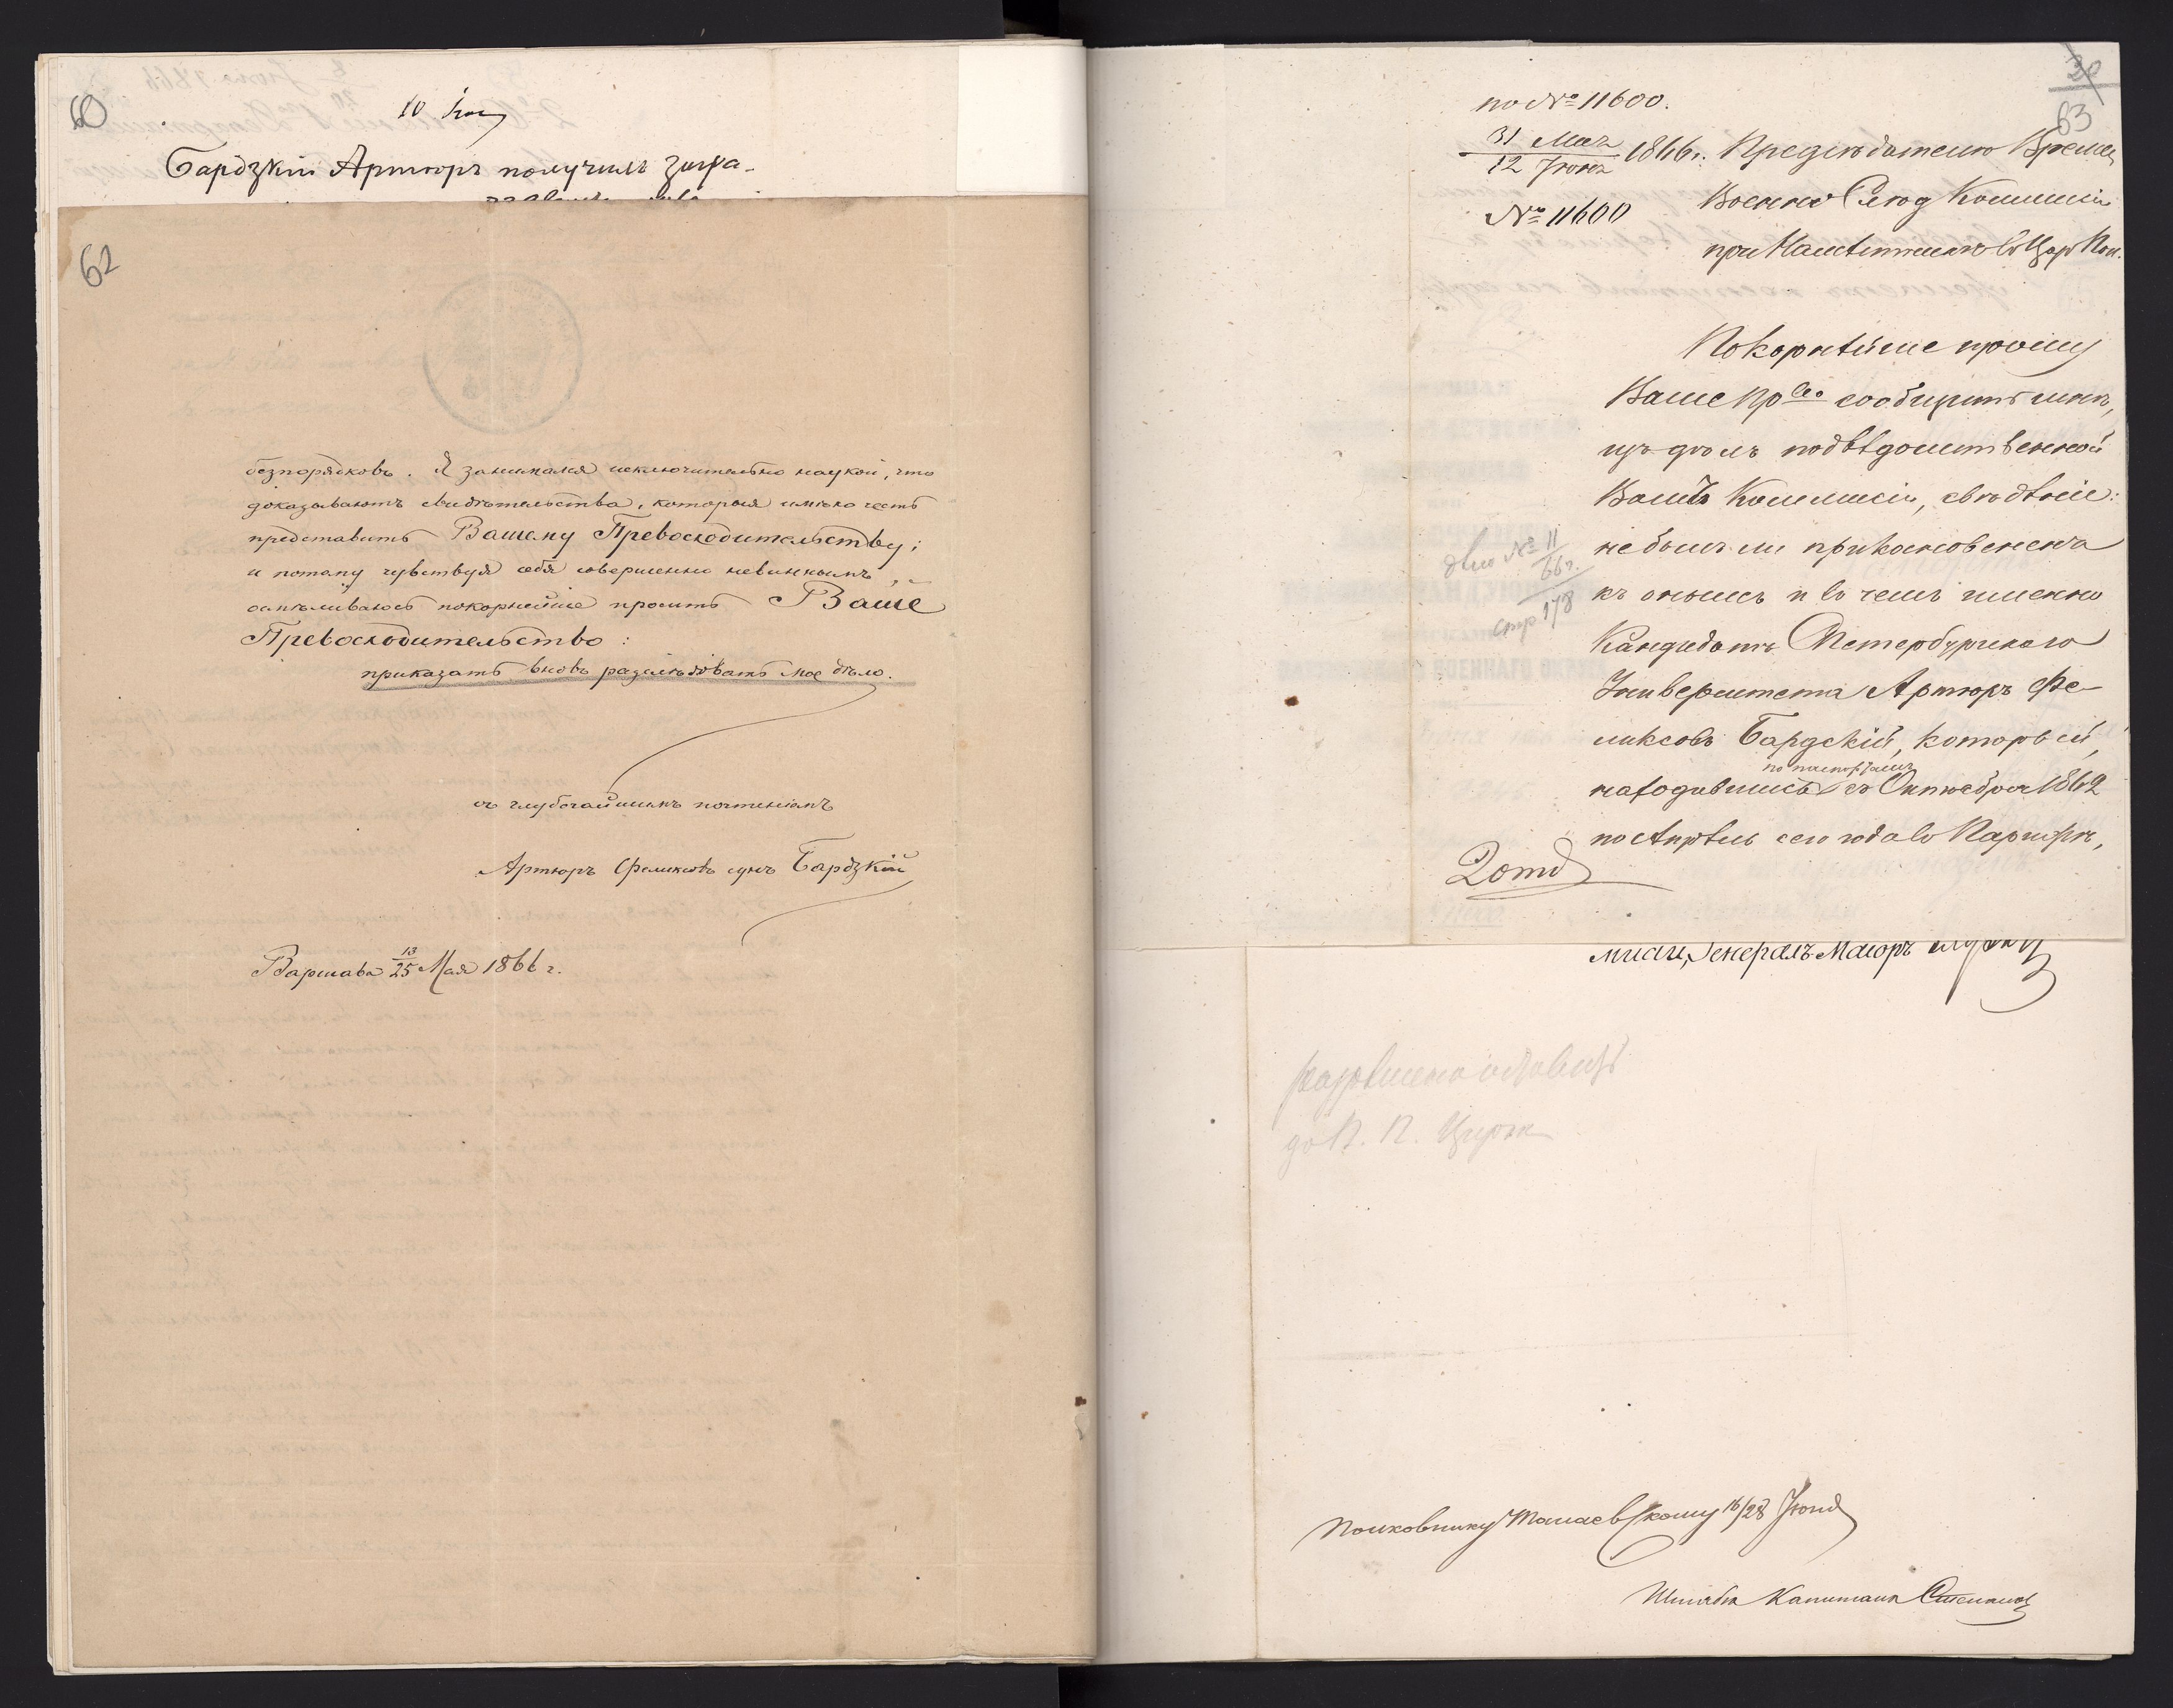 60
10 Іюн
Бардзкій Артюръ получилъ загра-
62
безпорядковъ. Я занимался исключительно наукой, что
доказываютъ свидѣтельства, которыя имѣю честь
представить Вашему Превосходительству;
и потому чувствуя себя совершенно невиннымъ,
осмѣливаюсь покорнѣйше просить Ваше
Превосходительство:
приказать вновь разслѣдовать мое дѣло.
съ глубочайшимъ почтеніемъ
Артюръ Феликсовъ сынъ Бардзкій
Варшава 13/25 Мая 1866 г.
63
по № 11600.
31 Мая / 12 Іюня 1866 г.
№ 11600
Предсѣдателю Времен
Военно Слѣд Коммисіи
при Намѣстникѣ въ Цар Пол.
Покорнѣйше прошу
Ваше Прво сообщить мнѣ,
изъ дѣлъ подвѣдомственной
Вамъ Коммисіи, свѣдѣніе:
не былъ ли прикосновененъ
къ онымъ и въ чемъ именно
Кандидатъ Петербургскаго
Университета Артюръ Фе-
ликсовъ Бардскій, который,
по паспортамъ
находившись съ Октября 1862
по Апрѣль сего года въ Парижѣ,
дѣло № 11
66 г.
стр 178
мисіи, Генералъ-Маіоръ
разрѣшено оставить
до П. П.
Полковнику 16/28 Іюня
Штабсъ Капитанъ Степановъ